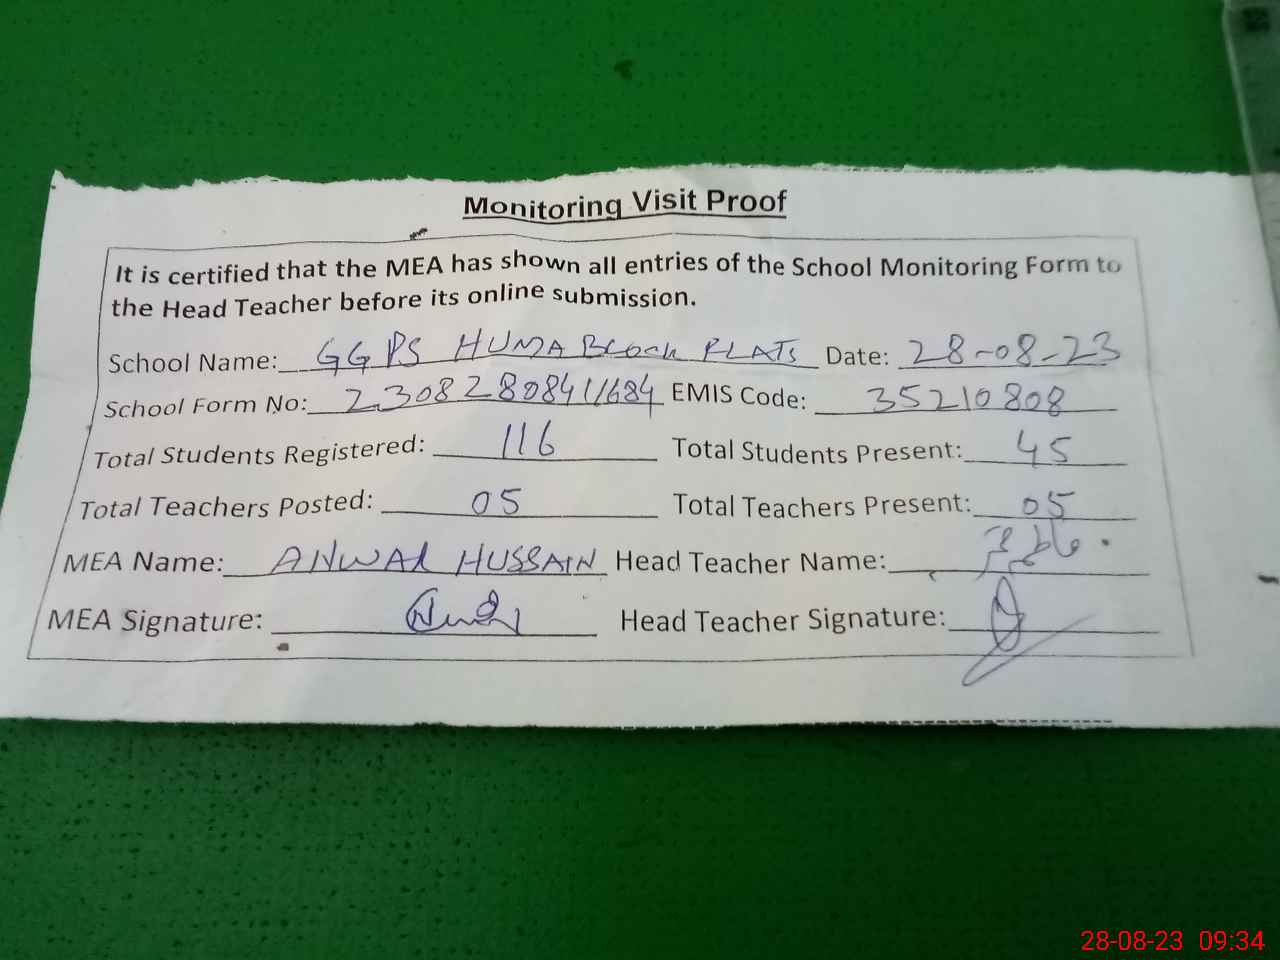 Monitoring Visit Proof
It is certified that the MEA has shown all entries of the School Monitoring Form to
the Head Teacher before its online submission.
School Name: GGPS HUMA Block FLATS Date: 28-08-23
School Form No: 23082808411684 EMIS Code: 35210808
Total Students Registered: 116 Total Students Present: 45
Total Teachers Posted: 05 Total Teachers Present: 05
MEA Name: ANWAR HUSSAIN Head Teacher Name:
MEA Signature: Head Teacher Signature:
28-08-23 09:34